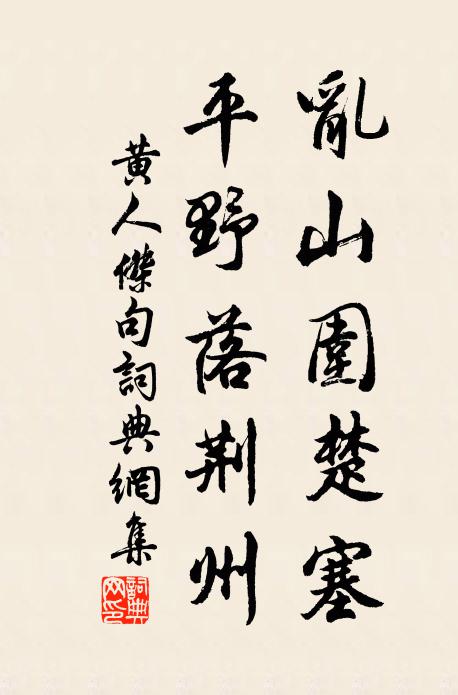 亂山圍楚塞
平野落荆州
黄人傑句詞典網集
詞典網印